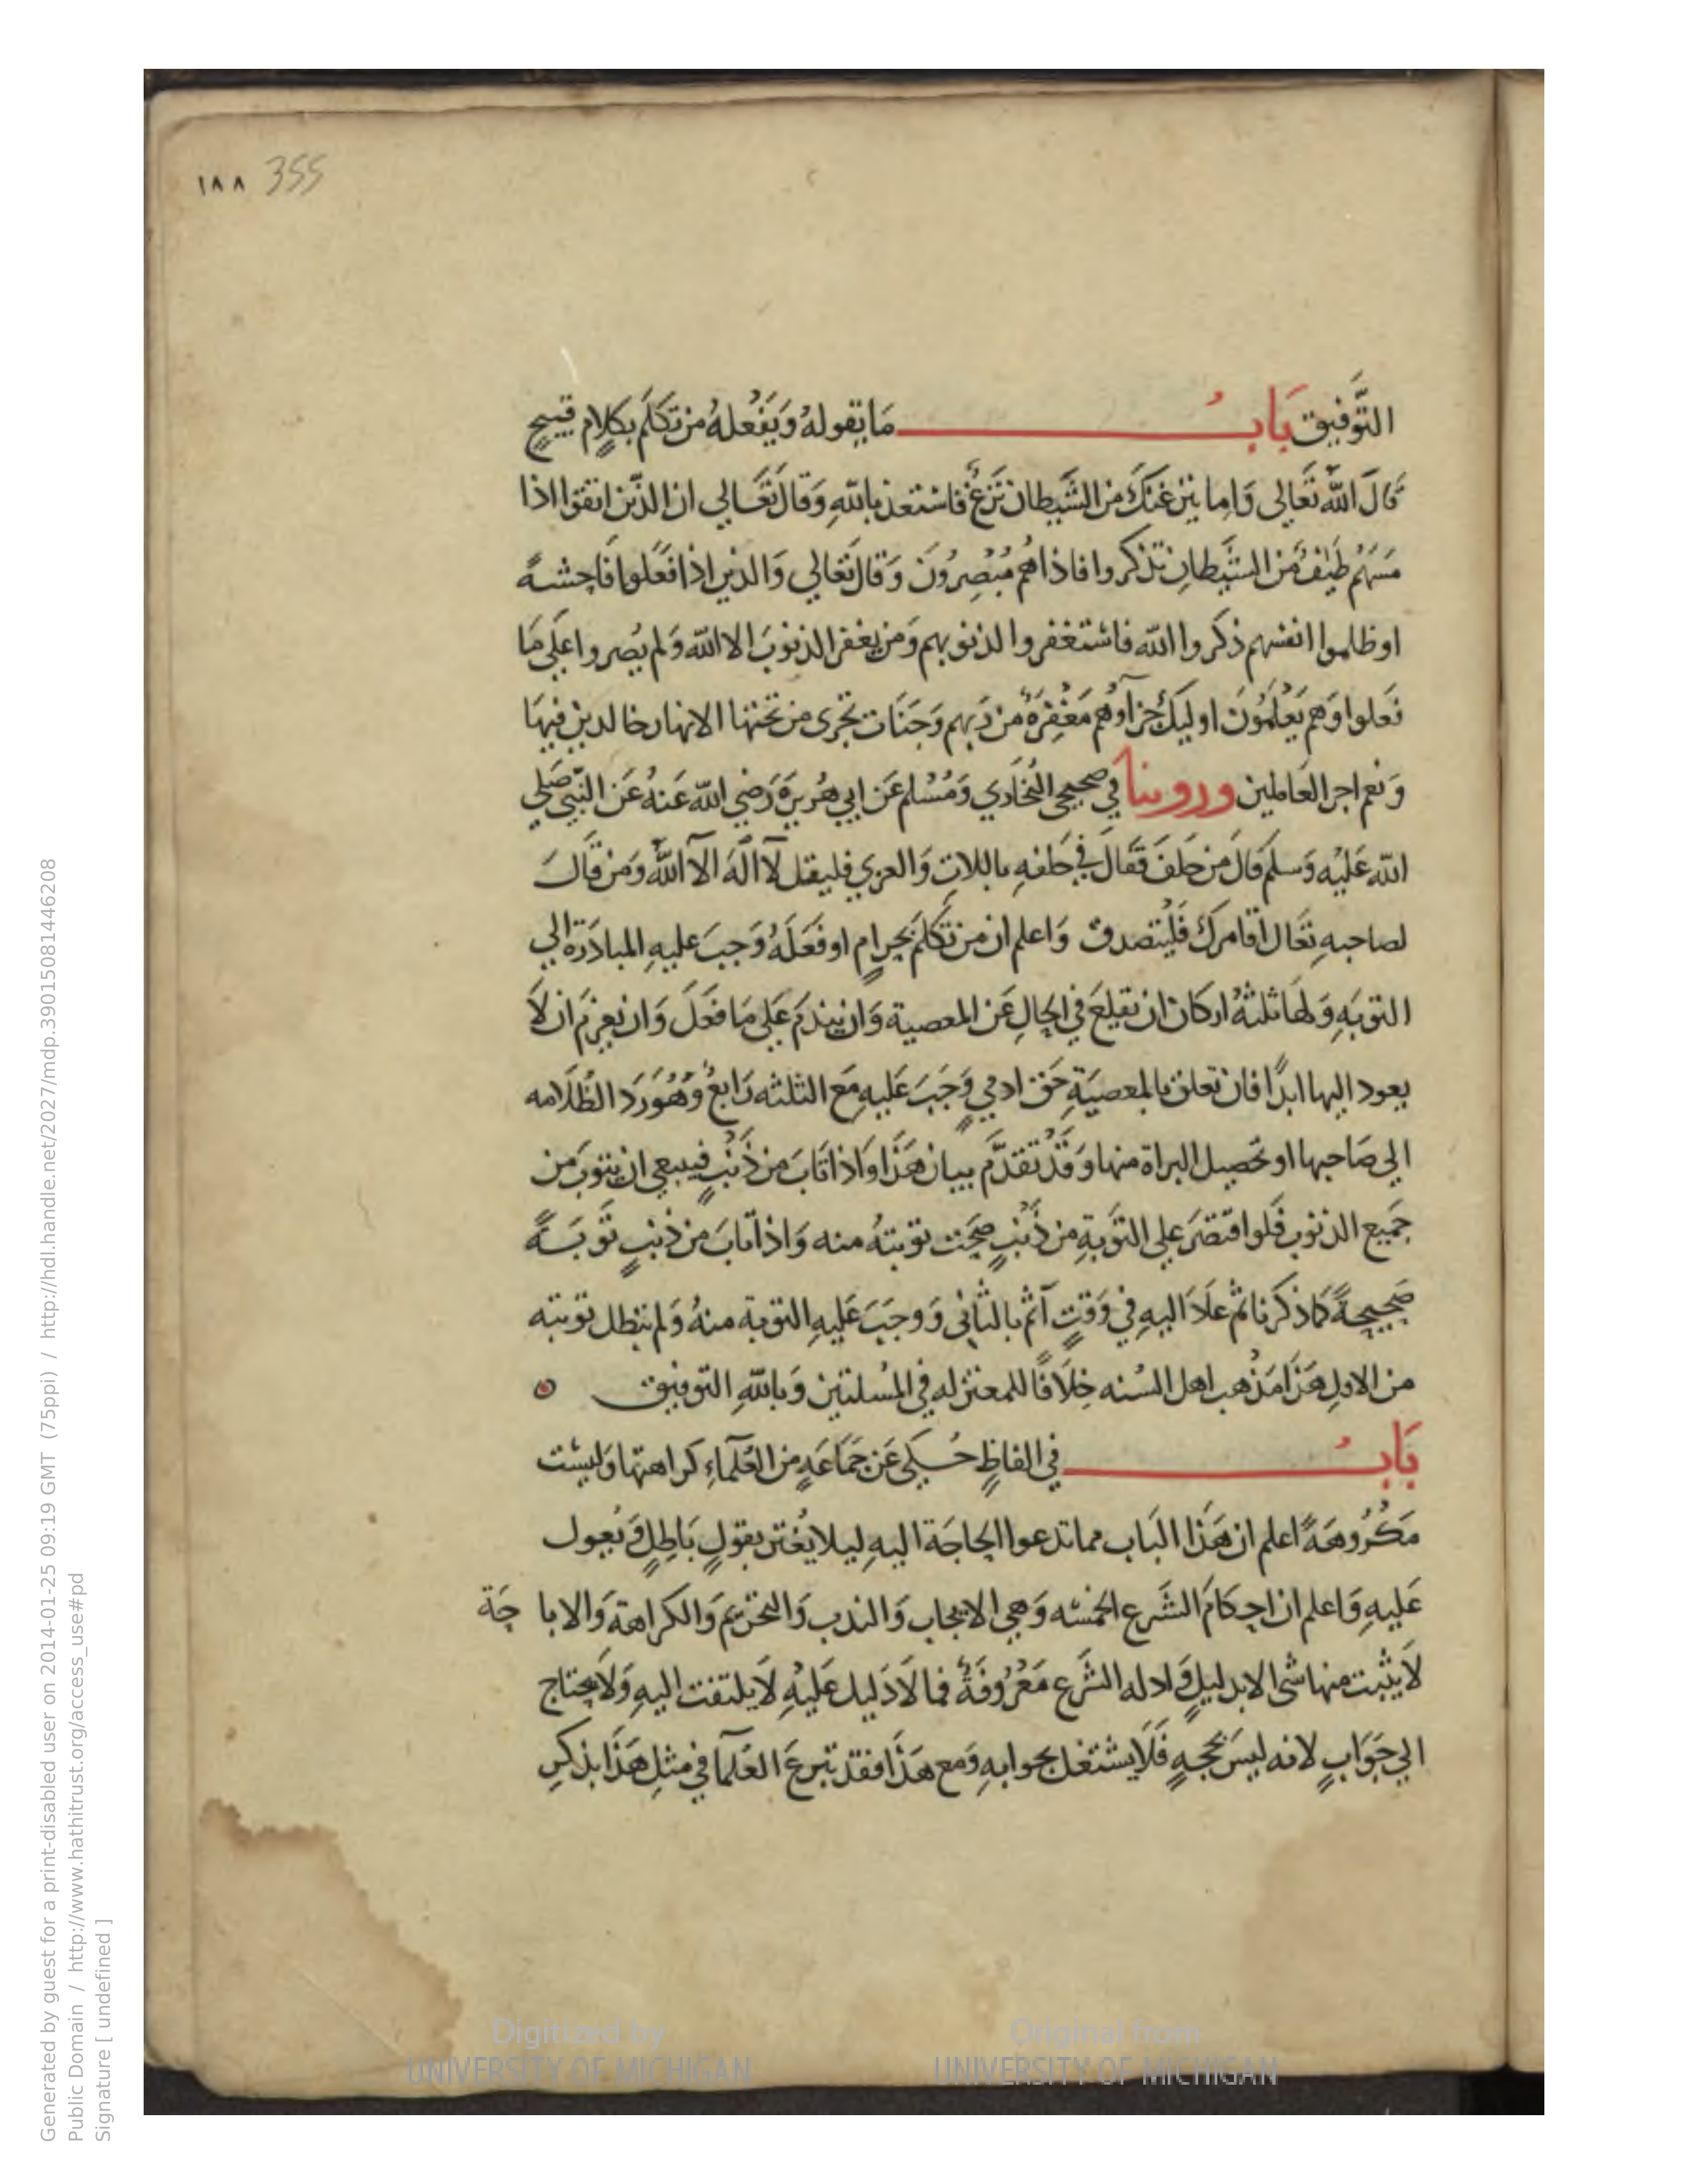 ١٨٨ 355
التَّوفيق بَابُ مَا يقولهُ وَيَفْعلهُ من تكَلَّم بكلامٍ قبيحٍ
قَالَ اللهُ تَعَالي وَاما ينزغنكَ من الشَّيطان نَزغٌ فاستعذ باللهِ وَقالَ تَعَالي ان الذّين اتقوا اذا
مَسَهُم طيفٌ مّن الشَّيطانِ تذكروا فاذا هُم مُبْصِرُونَ وَقالَ تعَالي وَالذين اذا فَعَلوا فَاحِشةً
او ظلموا انفسهم ذكروا الله فاستغفروا لذنوبهم وَمن يغفر الذنوبَ الا الله وَلم يُصروا عَلَي مَا
فَعلوا وَهم يَعْلَمُونَ اوليكَ جزآوُهم مَغْفِرَةٌ من رَبهم وَجَنَات تجرى من تحتها الانهار خالدين فيهَا
وَنعم اجر العَاملين وروينا في صحيحي البُخَاري وَمُسْلم عَن ابي هُريرَة رَضي الله عَنهُ عَن النَّبي صَلي
الله عَليْه وَسلم قالَ من حَلفَ فقالَ في حَلفهِ باللاتِ وَالعزي فليقل لآ الَهَ الآ اللهُ وَمن قَالَ
لصاحبهِ تعَال اقامركَ فَلْيتصدق وَاعلم ان من تكَلمَ بحرامٍ او فعَلَهُ وَجبَ عليهِ المبادَرَة الي
التوبَهِ وَلهَا ثلثهُ اركان ان يقلعَ في الحَالِ عَن المعصية وَان يندَم عَلي مَا فعَلَ وَان يعزمَ ان لاَ
يعود اليها ابدًا فان تعلق بالمعصيَةِ حَق ادميٍ وَجَبَ عَليهِ مَع الثلثه رَابعٌ وَهُوَ رَد الظُلَامه
الي صَاحبها او تحصيل البراة منها وَقدْ تقدَّم بيان هَذا وَاذا تابَ من ذَنْبٍ فينبغي ان يتوبَ من
جَميع الذنوب فَلو اقتصَرَ علي التَّوبَةِ من ذَنْبٍ صحَت توبتهُ منه وَاذا تابَ من ذَنبٍ تَوبَـةً
صَحيحةً كمَا ذكرنا ثم عَادَ اليهِ في وَقتٍ آثم بالثاني وَوجَبَ عَليهِ التوبة منهُ وَلم تبطل توبته
من الاولِ هَذا مَذْهب اهل السُنه خِلَافًا للمعتزله في المسُلتين وَباللهِ التوفيق
بَابُ في الفاظٍ حُـكي عَن جَمَاعَهٍ من العُلَمآءِ كراهتها وَليسْت
مَكْرُوهَةً اعلم ان هَذا البَاب مما تدعوا الحَاجَة اليهِ ليلا يُغتر بقولٍ بَاطِلٍ وَيُعول
عَليهِ وَاعلم ان احكامَ الشَرع الخمسْه وَهي الايجاب وَالندب وَالتحْريم وَالكراهة وَالاباحَة
لَا يثبت منها شى الا بدليلٍ وَادله الشَرع مَعْرُوفَةٌ فما لَا دَليل عَليْهِ لَا يلتفت اليهِ وَلاَ يحتاج
الي جَوَابٍ لانه ليسَ بحجهٍ فَلَا يشتغل بجوابهِ وَمع هَذا فقد تبرعَ العُلَمآ في مثلِ هَذا بذكرِ
Digitized by
UNIVERSITY OF MICHIGAN
Original from
UNIVERSITY OF MICHIGAN
Generated by guest for a print-disabled user on 2014-01-25 09:19 GMT (75ppi) / http://hdl.handle.net/2027/mdp.39015081446208
Public Domain / http://www.hathitrust.org/access_use#pd
Signature [ undefined ]